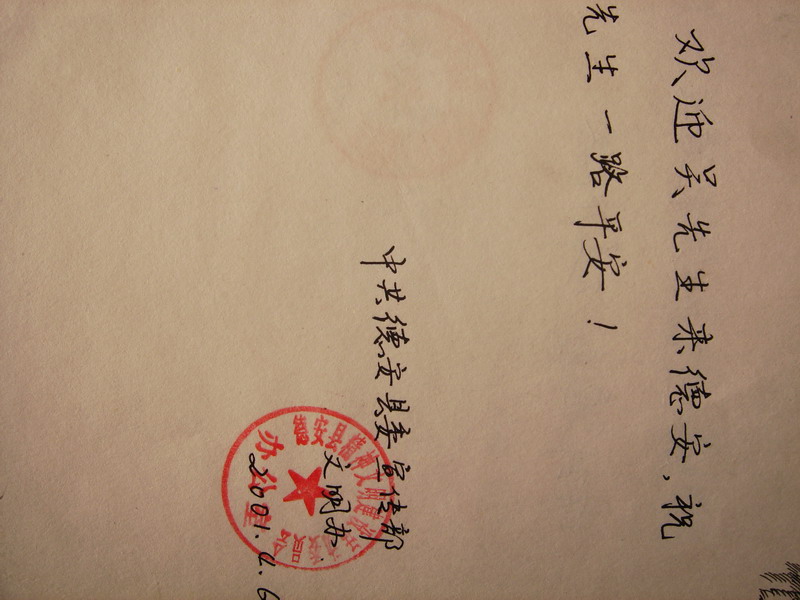 欢迎吴先生来德安，祝
先生一路平安！
中共德安县委宣传部
文明办
2001.4.6
德安县精神文明建设
办公室